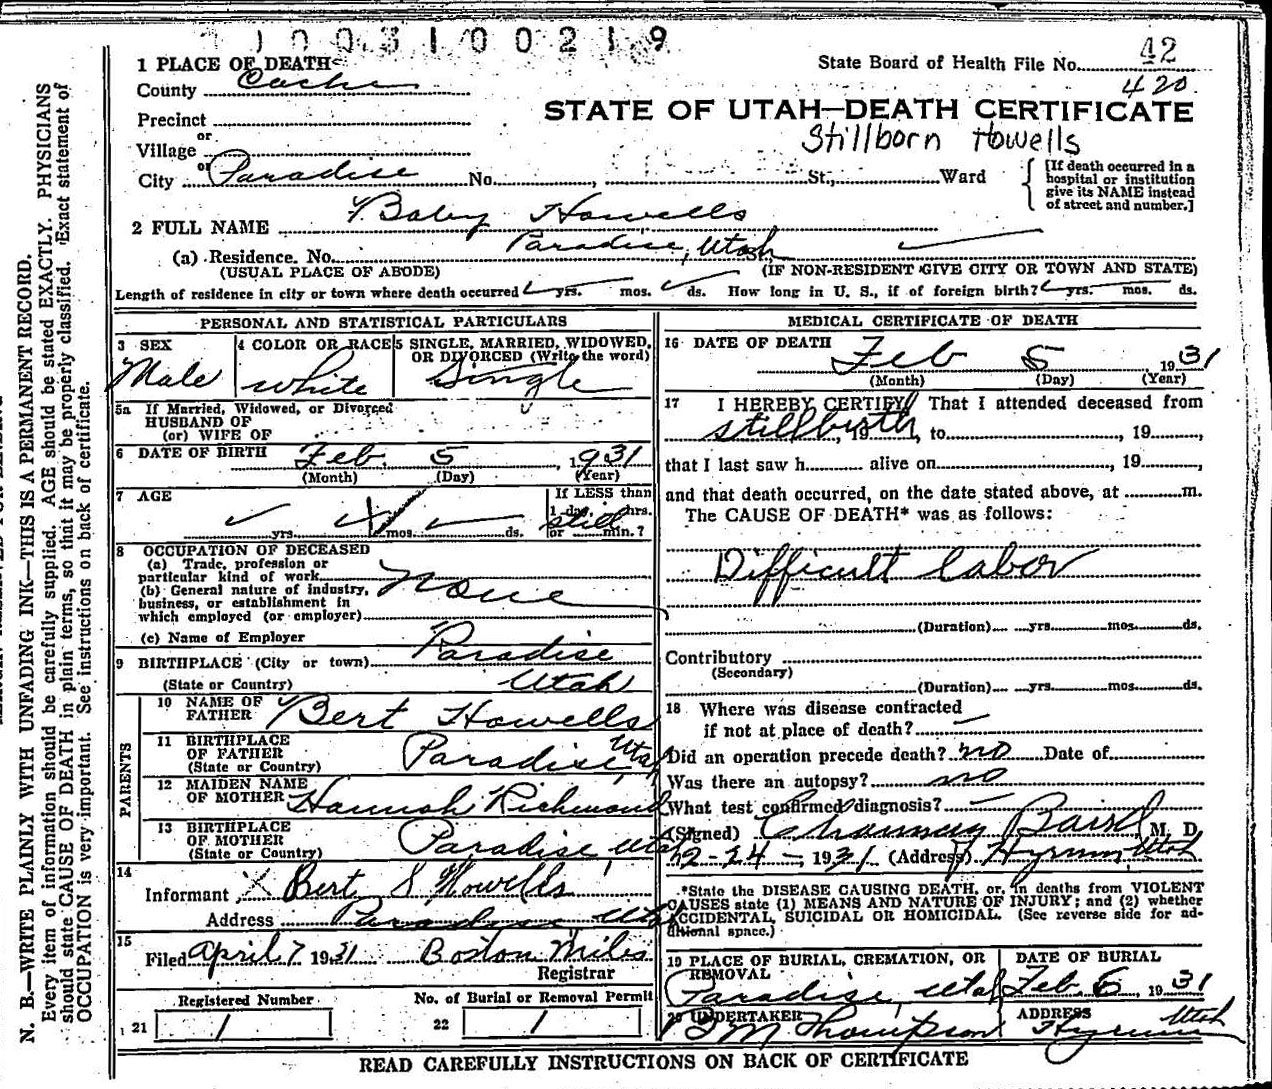 1 0 0 3 1 0 0 2 1 9
State Board of Health File No. 42
420
1 PLACE OF DEATH
County Cache
STATE OF UTAH—DEATH CERTIFICATE
Stillborn Howells
Precinct
or
Village
or
City Paradise No. , St., Ward
[If death occurred in a
hospital or institution
give its NAME instead
of street and number.]
2 FULL NAME Baby Howells
(a) Residence. No. Paradise, Utah
(USUAL PLACE OF ABODE) (IF NON-RESIDENT GIVE CITY OR TOWN AND STATE)
Length of residence in city or town where death occurred yrs. mos. ds. How long in U. S., if of foreign birth? yrs. mos. ds.
PERSONAL AND STATISTICAL PARTICULARS
3 SEX
Male
4 COLOR OR RACE
white
5 SINGLE, MARRIED, WIDOWED,
OR DIVORCED (Write the word)
Single
5a If Married, Widowed, or Divorced
HUSBAND OF
(or) WIFE OF
6 DATE OF BIRTH Feb. 5, 1931
(Month) (Day) (Year)
7 AGE
yrs. mos. ds.
If LESS than
1 day, hrs.
still
or min.?
8 OCCUPATION OF DECEASED
(a) Trade, profession or
particular kind of work
(b) General nature of industry,
business, or establishment in
which employed (or employer)
none
(c) Name of Employer
9 BIRTHPLACE (City or town) Paradise
(State or Country) Utah
PARENTS
10 NAME OF
FATHER Bert Howells
11 BIRTHPLACE
OF FATHER
(State or Country) Paradise, Utah
12 MAIDEN NAME
OF MOTHER Hannah Richmond
13 BIRTHPLACE
OF MOTHER
(State or Country) Paradise Utah
14
Informant X Bert S Howells
Address Paradise Utah
15
Filed April 7 1931 Boston Miles
Registrar
Registered Number
21 1
No. of Burial or Removal Permit
22 1
MEDICAL CERTIFICATE OF DEATH
16 DATE OF DEATH
Feb 5 1931
(Month) (Day) (Year)
17 I HEREBY CERTIFY, That I attended deceased from
stillbirth, 19 , to , 19 ,
that I last saw h alive on , 19 ,
and that death occurred, on the date stated above, at m.
The CAUSE OF DEATH* was as follows:
Difficult labor
(Duration) yrs. mos. ds.
Contributory
(Secondary)
(Duration) yrs. mos. ds.
18 Where was disease contracted
if not at place of death?
Did an operation precede death? no Date of
Was there an autopsy? no
What test confirmed diagnosis?
(Signed) Chauncey Baird, M. D.
2-24-, 1931 (Address) Hyrum, Utah
*State the DISEASE CAUSING DEATH, or, in deaths from VIOLENT
CAUSES state (1) MEANS AND NATURE OF INJURY; and (2) whether
ACCIDENTAL, SUICIDAL OR HOMICIDAL. (See reverse side for ad-
ditional space.)
19 PLACE OF BURIAL, CREMATION, OR
REMOVAL
Paradise, Utah
DATE OF BURIAL
Feb. 6, 1931
20 UNDERTAKER
Thompson
ADDRESS
Hyrum Utah
READ CAREFULLY INSTRUCTIONS ON BACK OF CERTIFICATE
N. B.—WRITE PLAINLY WITH UNFADING INK—THIS IS A PERMANENT RECORD.
Every item of information should be carefully supplied. AGE should be stated EXACTLY. PHYSICIANS
should state CAUSE OF DEATH in plain terms, so that it may be properly classified. Exact statement of
OCCUPATION is very important. See instructions on back of certificate.